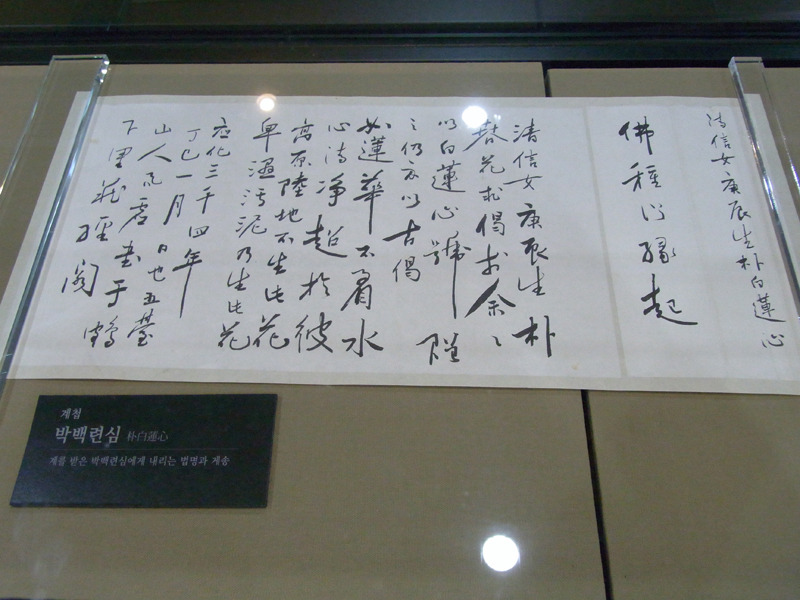 清信女庚辰生朴白蓮心
佛種從緣起
清信女庚辰生朴
替花求偈於余々
以白蓮心號贈
之仍亦以古偈
如蓮華不着水
心清淨超於彼
高原陸地不生此花
卑濕污泥乃生此花
应化三千四年
丁巳一月 日也五臺
山人 書于
下里藏經閣
계첩
박백련심 朴白蓮心
계를 받은 박백련심에게 내리는 법명과 게송